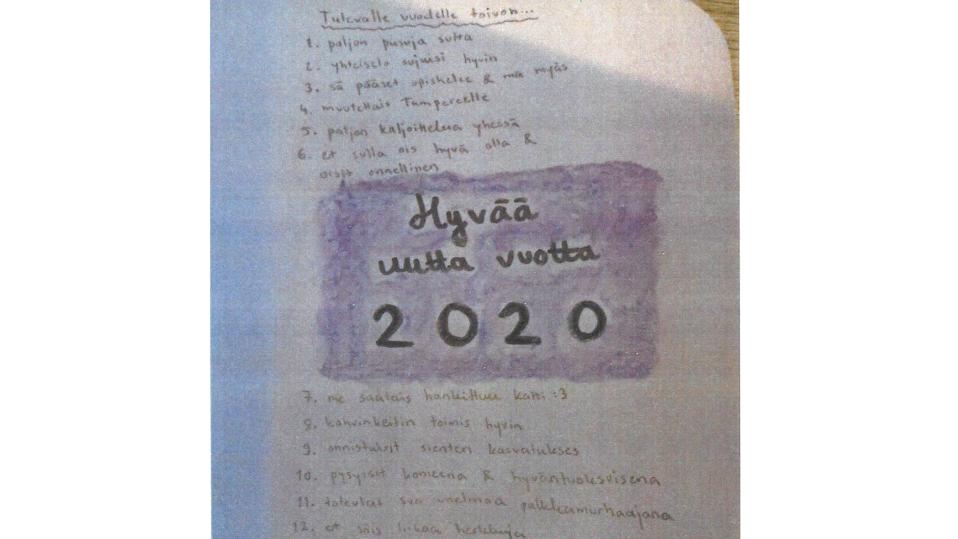 Tulevalle vuodelle toivon...
1. paljon pusuja sulta
2. yhteiselo sujuisi hyvin
3. sä pääset opiskelee & mä myös
4. muutettais Tampereelle
5. paljon kaljoittelua yhessä
6. et sulla ois hyvä olla &
oisit onnellinen
Hyvää
uutta vuotta
2020
7. me saatais hankittuu katti :3
8. kahvinkeitin toimis hyvin
9. onnistuisit sienten kasvatukses
10. pysyisit komeena & hyväntuoksuisena
11. toteutat sun unelmaa palkkamurhaajana
12. et söis liikaa herkkuja